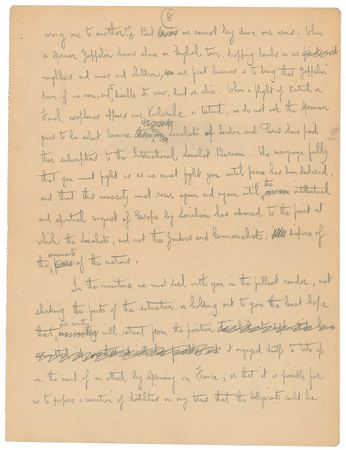 8
wrong one to another?". But we cannot lay down our arms. When
a German Zeppelin hovers alone an English town, dropping bombs on our
neighbors and wives and children, our first business is to bring that Zeppelin
down if we can, and disable its crew, dead or alive. When a flight of British or
French aeroplanes appears over Karlsruhe or, we do not ask the German
guns to be silent because Socialists of London and Paris have paid
their subscriptions to the International Socialist Bureau. We recognize fully
that you must fight us as we must fight you until peace has been declared,
and that this necessity must recur again and again until the intellectual
and spiritual conquest of Europe by Socialism has advanced to the point at
which the Socialists, and not the Junkers and Commercialists, dispose of
the armaments of the nations.
In the meantime we must deal with you in the fullest candor, not
shirking the facts of the situation or holding out to you the least hope
that our country will retreat from the position
it engaged itself to take up
in the event of an attack by Germany on France, or that it is possible for
us to propose a cessation of hostilities on any terms that the belligerents could be